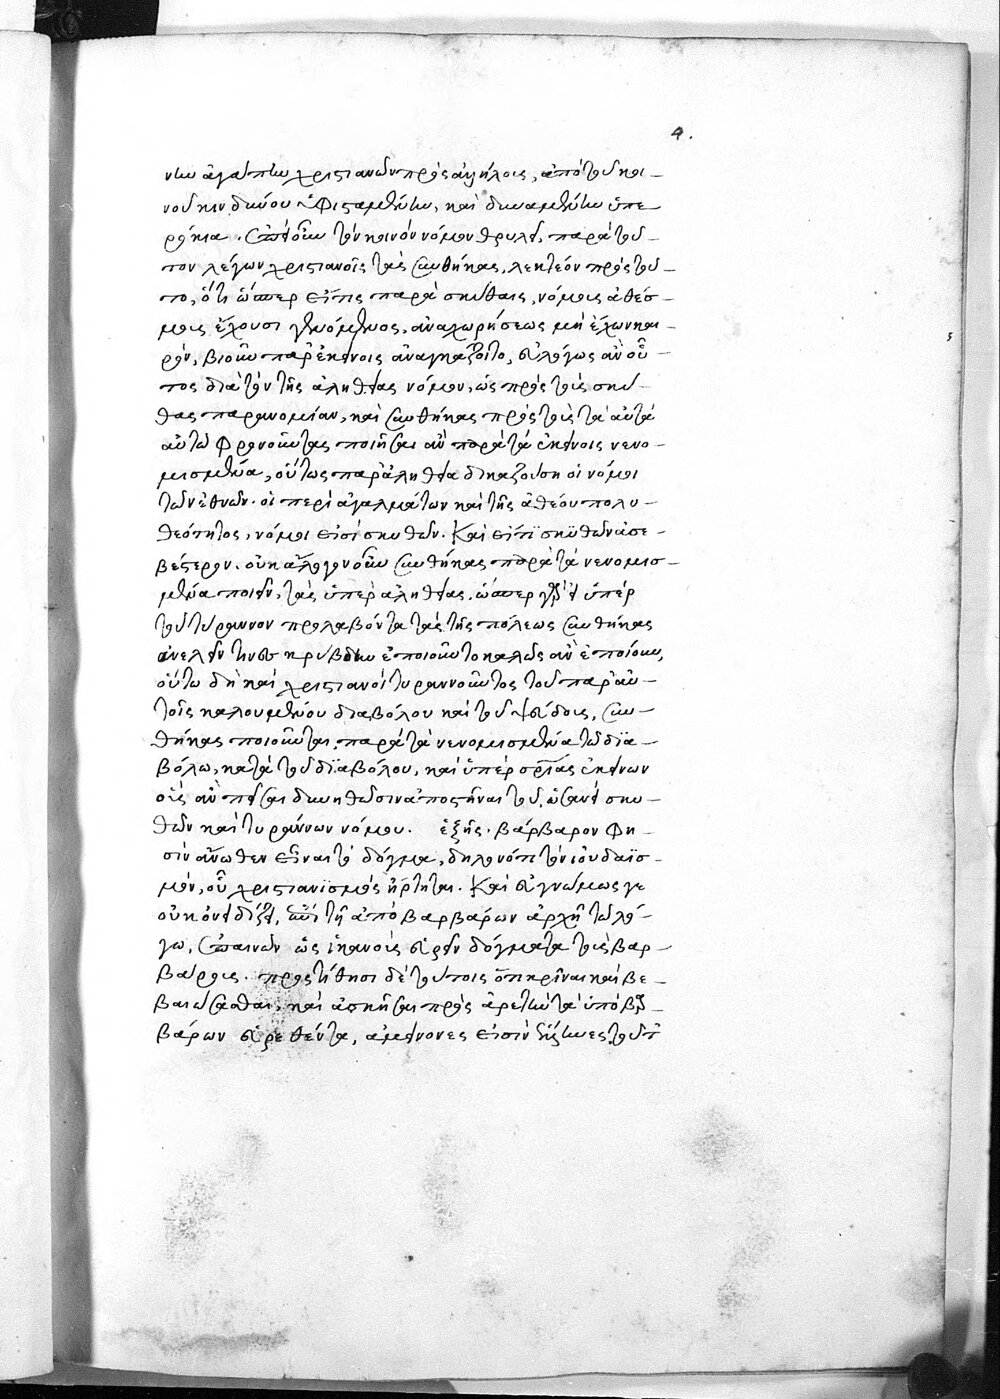 4.
νην ἀγάπην χριστιανῶν πρὸς ἀλλήλους, ἀπὸ τοῦ κοι-
νοῦ κινδύνου ὑφισταμένην, καὶ δυναμένην ὑπε-
ρόρκια. ἐπεὶ οὖν τὸν κοινὸν νόμον θρυλεῖ, παρὰ τοῦ-
τον λέγων χριστιανοῖς τὰς συνθήκας, λεκτέον πρὸς τοῦ-
το, ὅτι ὥσπερ εἴ τις παρὰ σκύθαις, νόμους ἀθέσ-
μους ἔχουσι γενόμενος, ἀναχωρήσεως μὴ ἔχων και-
ρὸν, βιοῦν παρ' ἐκείνοις ἀναγκάζοιτο, εὐλόγως ἂν οὗ-
τος διὰ τὸν τῆς ἀληθείας νόμον, ὡς πρὸς τοὺς σκύ-
θας παρανομίαν, καὶ συνθήκας πρὸς τοὺς τὰ αὐτὰ
αὐτῷ φρονοῦντας ποιῆσαι ἂν παρὰ τὰ ἐκείνοις νενο-
μισμένα, οὕτως παρ' ἀληθείᾳ δικαζούσῃ οἱ νόμοι
τῶν ἐθνῶν. οἱ περὶ ἀγαλμάτων καὶ τῆς ἀθέου πολυ-
θεότητος, νόμοι εἰσὶ σκυθῶν. Καὶ εἴ τι σκυθῶν ἀσε-
βέστερον. οὐκ ἄλογον οὖν συνθήκας παρὰ τὰ νενομισ-
μένα ποιεῖν, τὰς ὑπὲρ ἀληθείας. ὥσπερ γὰρ εἰ ὑπὲρ
τοῦ τύραννον προλαβόντα τὰς τῆς πόλεως συνθήκας
ἀνελεῖν τινες κρύβδην ἐποιοῦντο καλῶς ἂν ἐποίουν,
οὕτω δὴ καὶ χριστιανοὶ τυραννοῦντος τοῦ παρ' αὐ-
τοῖς καλουμένου διαβόλου καὶ τοῦ ψεύδους, συν-
θήκας ποιοῦνται παρὰ τὰ νενομισμένα τῷ δια-
βόλῳ, κατὰ τοῦ διαβόλου, καὶ ὑπὲρ σρίας ἐκείνων
οὓς ἂν πεῖσαι δυνηθῶσιν ἀποστῆναι τοῦ, ὡσανεὶ σκυ-
θῶν καὶ τυράννων νόμου. ἑξῆς. βάρβαρον φη-
σὶν ἄνωθεν εἶναι τὸ δόγμα, δηλονότι τὸν ἰουδαϊσ-
μὸν, οὗ χριστιανισμὸς ἤρτηται. Καὶ εὐγνωμόνως γε
οὐκ ὀνειδίζει, ἐπὶ τῇ ἀπὸ βαρβάρων ἀρχῇ τῷ λό-
γῳ, ἐπαινῶν ὡς ἱκανοὺς εὑρεῖν δόγματα τοὺς βαρ-
βάρους. προστίθησι δὲ τούτοις ὅτι κρῖναι καὶ βε-
βαιώσασθαι, καὶ ἀσκῆσαι πρὸς ἀρετὴν τὰ ὑπὸ βαρ-
βάρων εὑρεθέντα, ἀμείνονές εἰσιν ἕλληνες. τοῦτ